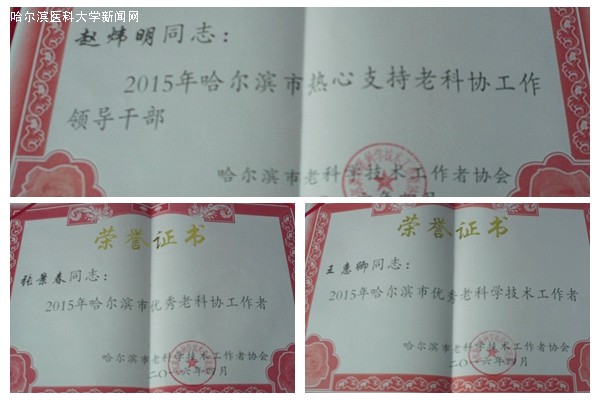 哈尔滨医科大学新闻网
赵炜明同志：
2015年哈尔滨市热心支持老科协工作
领导干部
哈尔滨市老科学技术工作者协会
荣誉证书
张景春同志：
2015年哈尔滨市优秀老科协工作者
哈尔滨市老科学技术工作者协会
二〇一六年四月
荣誉证书
王惠卿同志：
2015年哈尔滨市优秀老科学技术工作者
哈尔滨市老科学技术工作者协会
二〇一六年四月